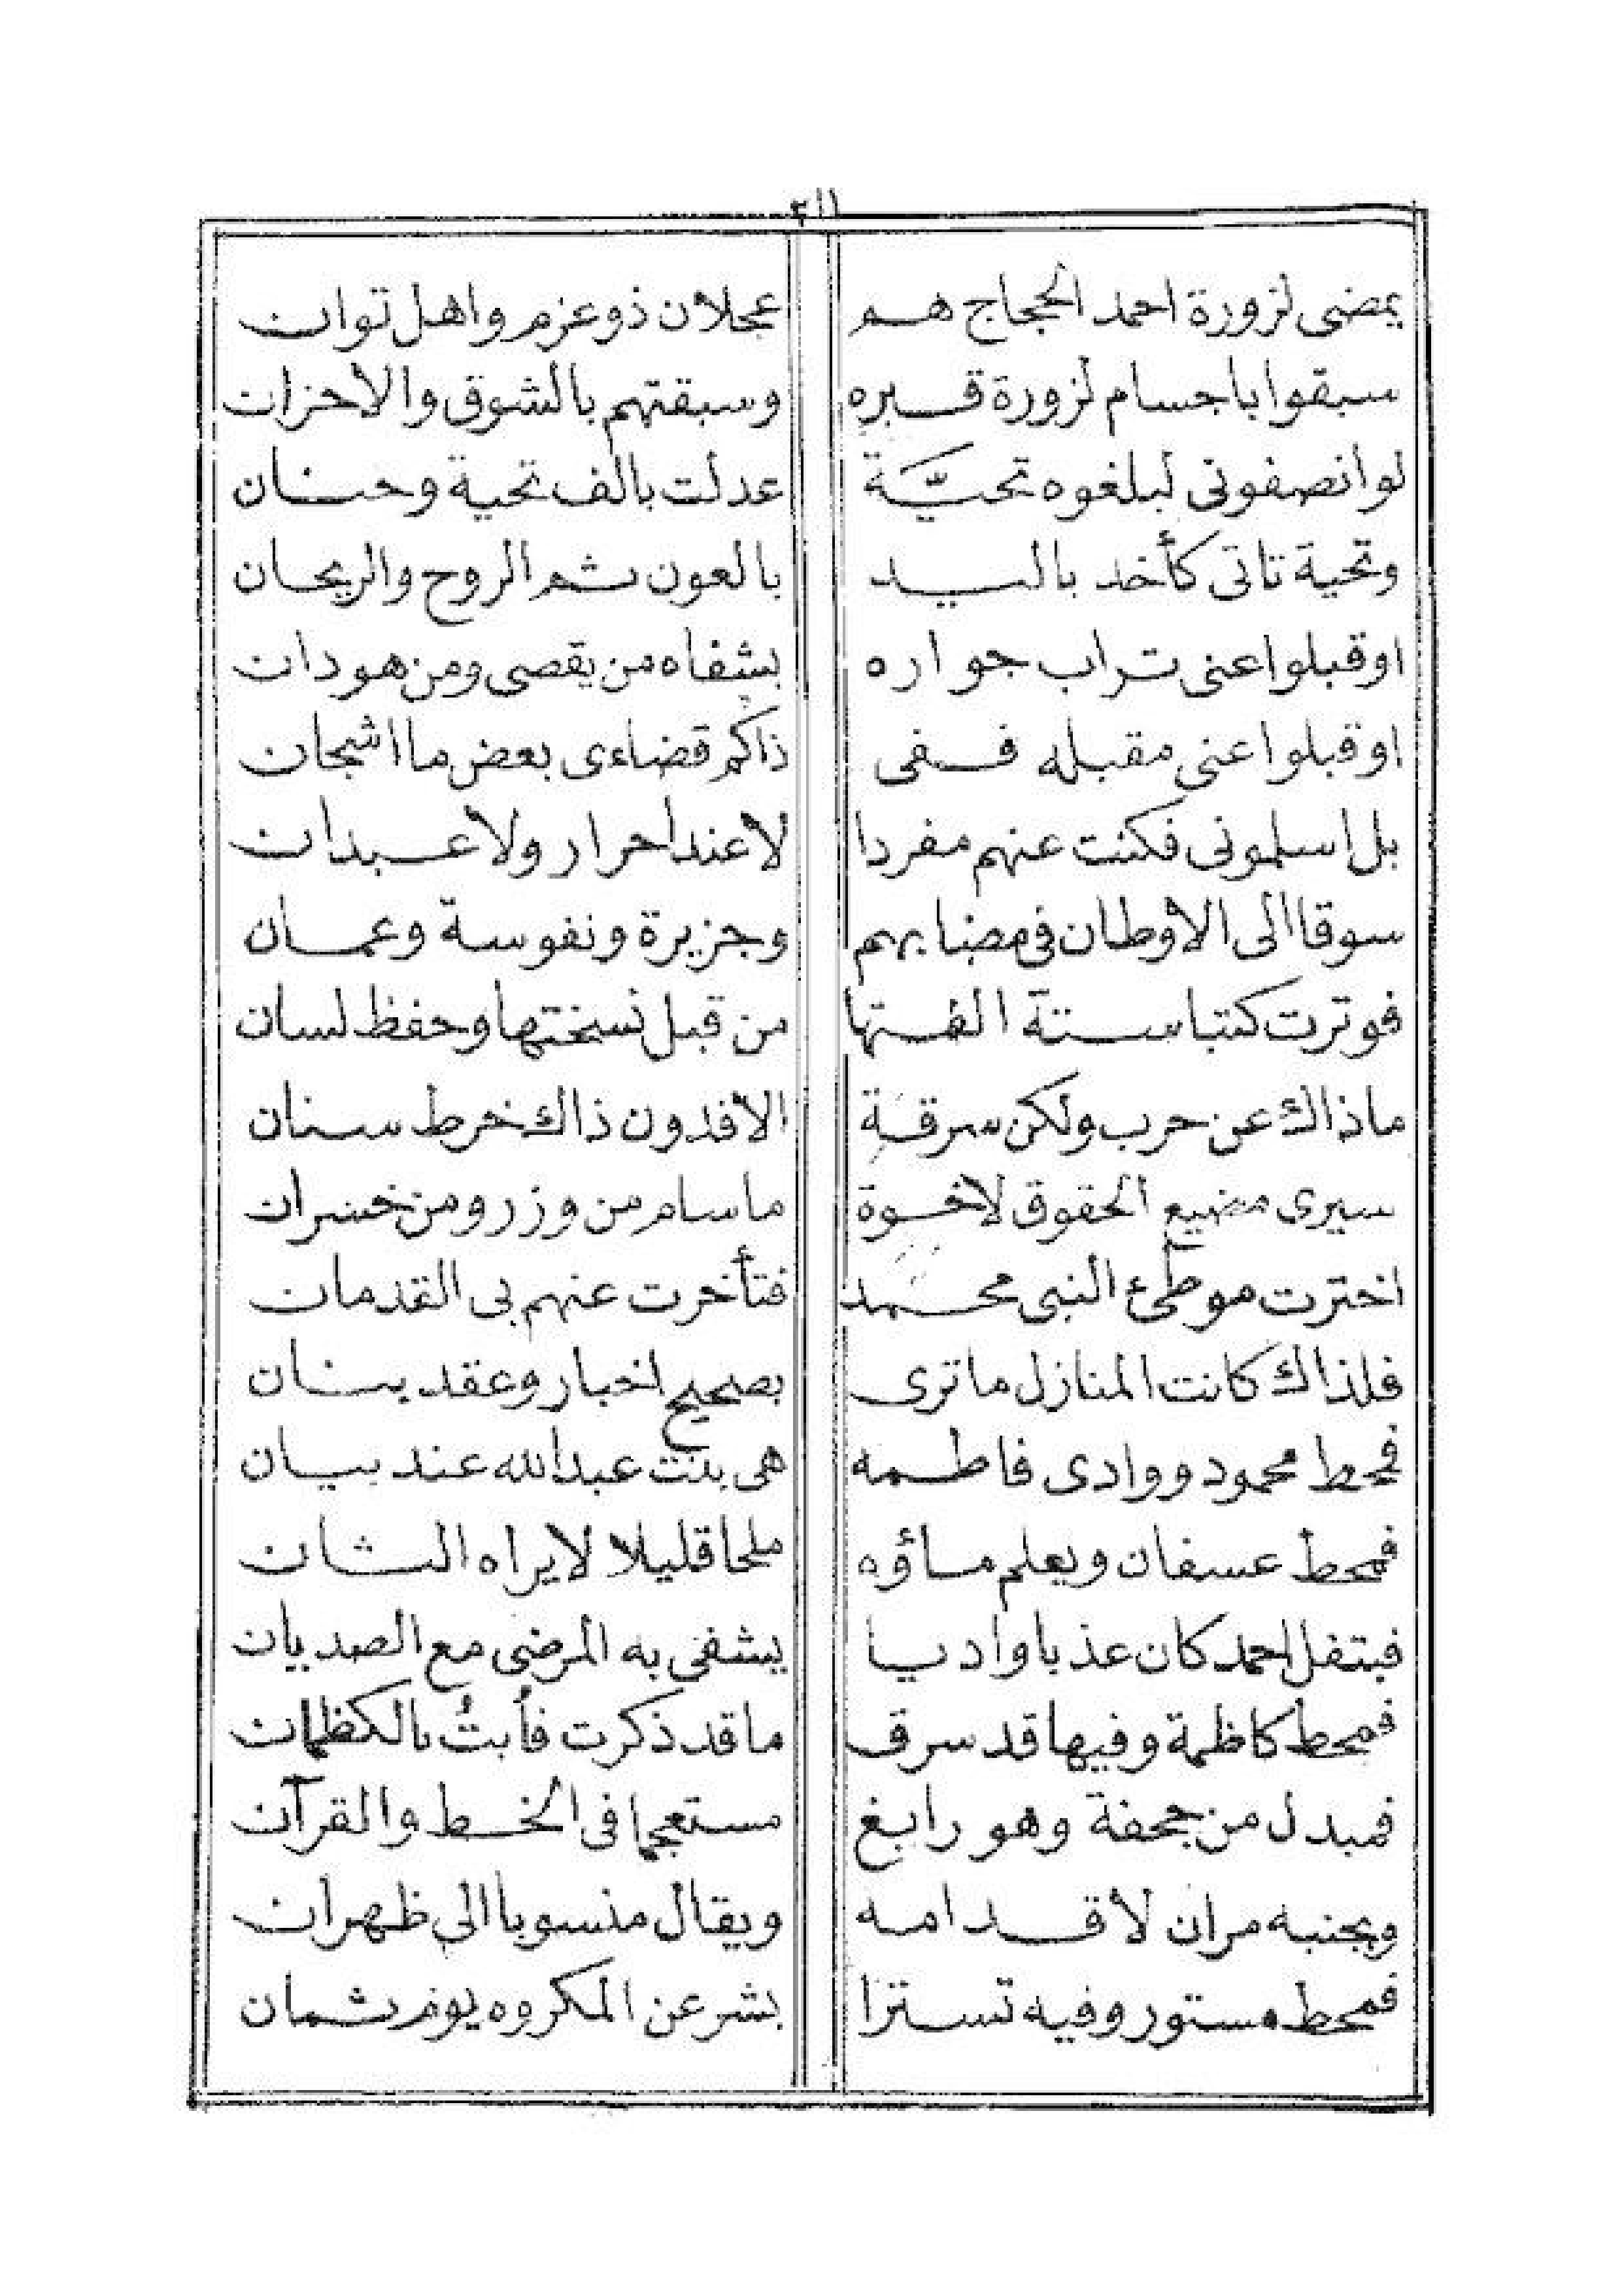 ٢١١
يمضى لزورة احمد الحجاج هم عجلان ذو عزم واهل توان
سبقوا باجسام لزورة قبره وسبقتهم بالشوق والاحزان
لو انصفونى لبلغوه تحيّة عدلت بالف تحية وحنان
وتحية تاتى كأخد باليد بالعون ثم الروح والريحان
او قبلوا عنى تراب جواره بشفاه من يقصى ومن هو دان
او قبلوا عنى مقبله ففى ذاكم قضاءى بعض ما اشجان
بل اسلمونى فكنت عنهم مفردا لا عند احرار ولا عبدان
سوقا الى الاوطان فى مضابهم وجزيرة ونفوسة وعمان
فوترت كتبا ستة الفتها من قبل نسختها وحفظ لسان
ماذاك عن حرب ولكن سرقة الافدون ذاك خرط سنان
سيرى مضيع الحقوق لاخوة ما سام من وزر ومن خسران
اخترت موطئ النبى محمد فتأخرت عنهم بى القدمان
فلذاك كانت المنازل ما ترى بصحيح اخبار وعقد بنان
فمحط محمود ووادى فاطمه هى بنت عبدالله عند بيان
فمحط عسفان ويعلم ماؤه ملحا قليلا لا يراه الشان
فبتفل احمد كان عذبا وادبيا يشفى به المرضى مع الصديان
فمحط كاظمة وفيها قد سرق ما قد ذكرت فأبتُ بالكظمان
فمبدل من جحفة وهو رابغ مستعجما فى الخط والقرآن
وبجنبه مران لا قدامه ويقال منسوبا الى ظهران
فمحط مستور وفيه تسترا بشر عن المكروه يوم ثمان